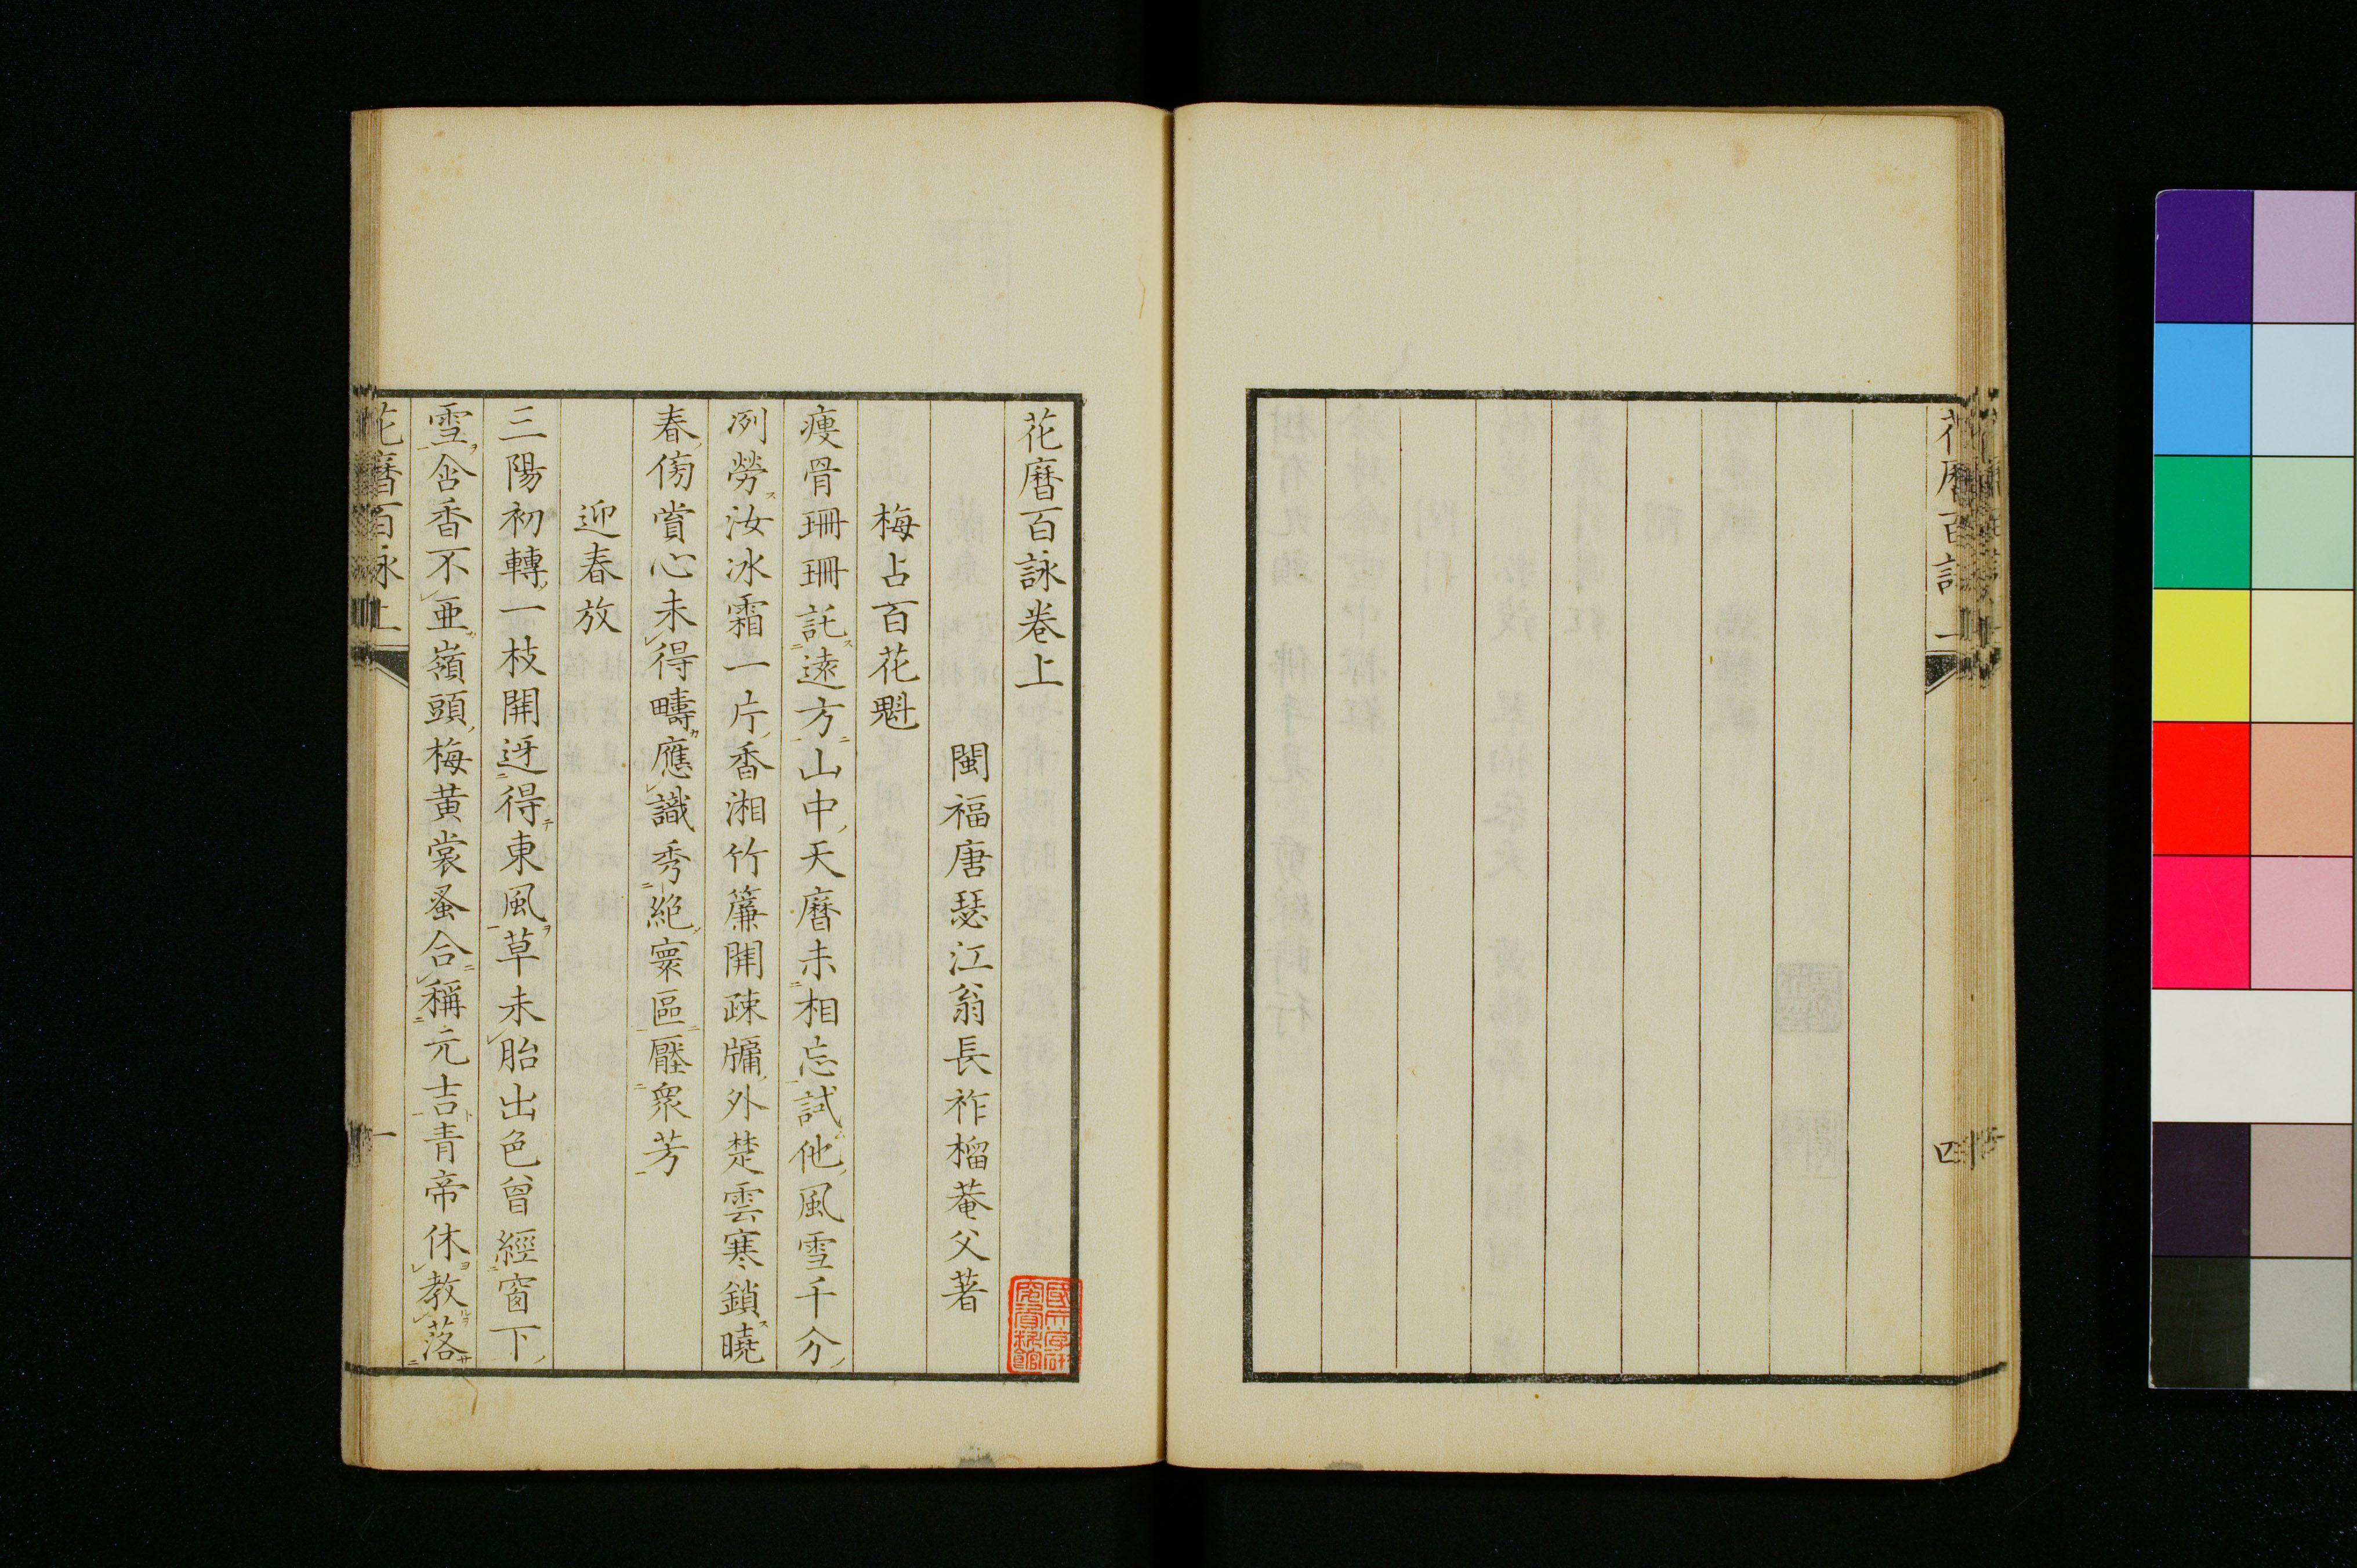 花曆百詠卷上
閩福唐瑟江翁長祚榴菴父著
梅占百花魁
瘦骨珊珊託遠方山中天曆未相忘試他風雪千分
冽勞汝冰霜一片香湘竹簾開疎牖外楚雲寒鎖曉
春傍賞心未得疇應識秀絕寰區壓衆芳
迎春放
三陽初轉一枝開迓得東風草未胎出色曾經窗下
雪含香不亜嶺頭梅黃裳蚤合稱元吉青帝休教落
花曆百詠上
一